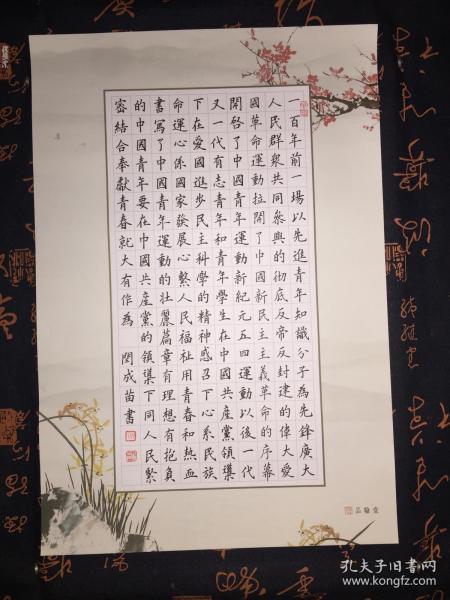 一百年前一場以先進青年知識分子為先鋒廣大
人民群眾共同參與的徹底反帝反封建的偉大愛
國革命運動拉開了中國新民主主義革命的序幕
開啓了中國青年運動新紀元五四運動以後一代
又一代有志青年和青年學生在中國共產黨領導
下在愛國進步民主科學的精神感召下心系民族
命運心係國家發展心繫人民福祉用青春和熱血
書寫了中國青年運動的壯麗篇章有理想有抱負
的中國青年要在中國共產黨的領導下同人民緊
密結合奉獻青春就大有作為 閔成苗書
孔夫子旧书网
www.kongfz.com